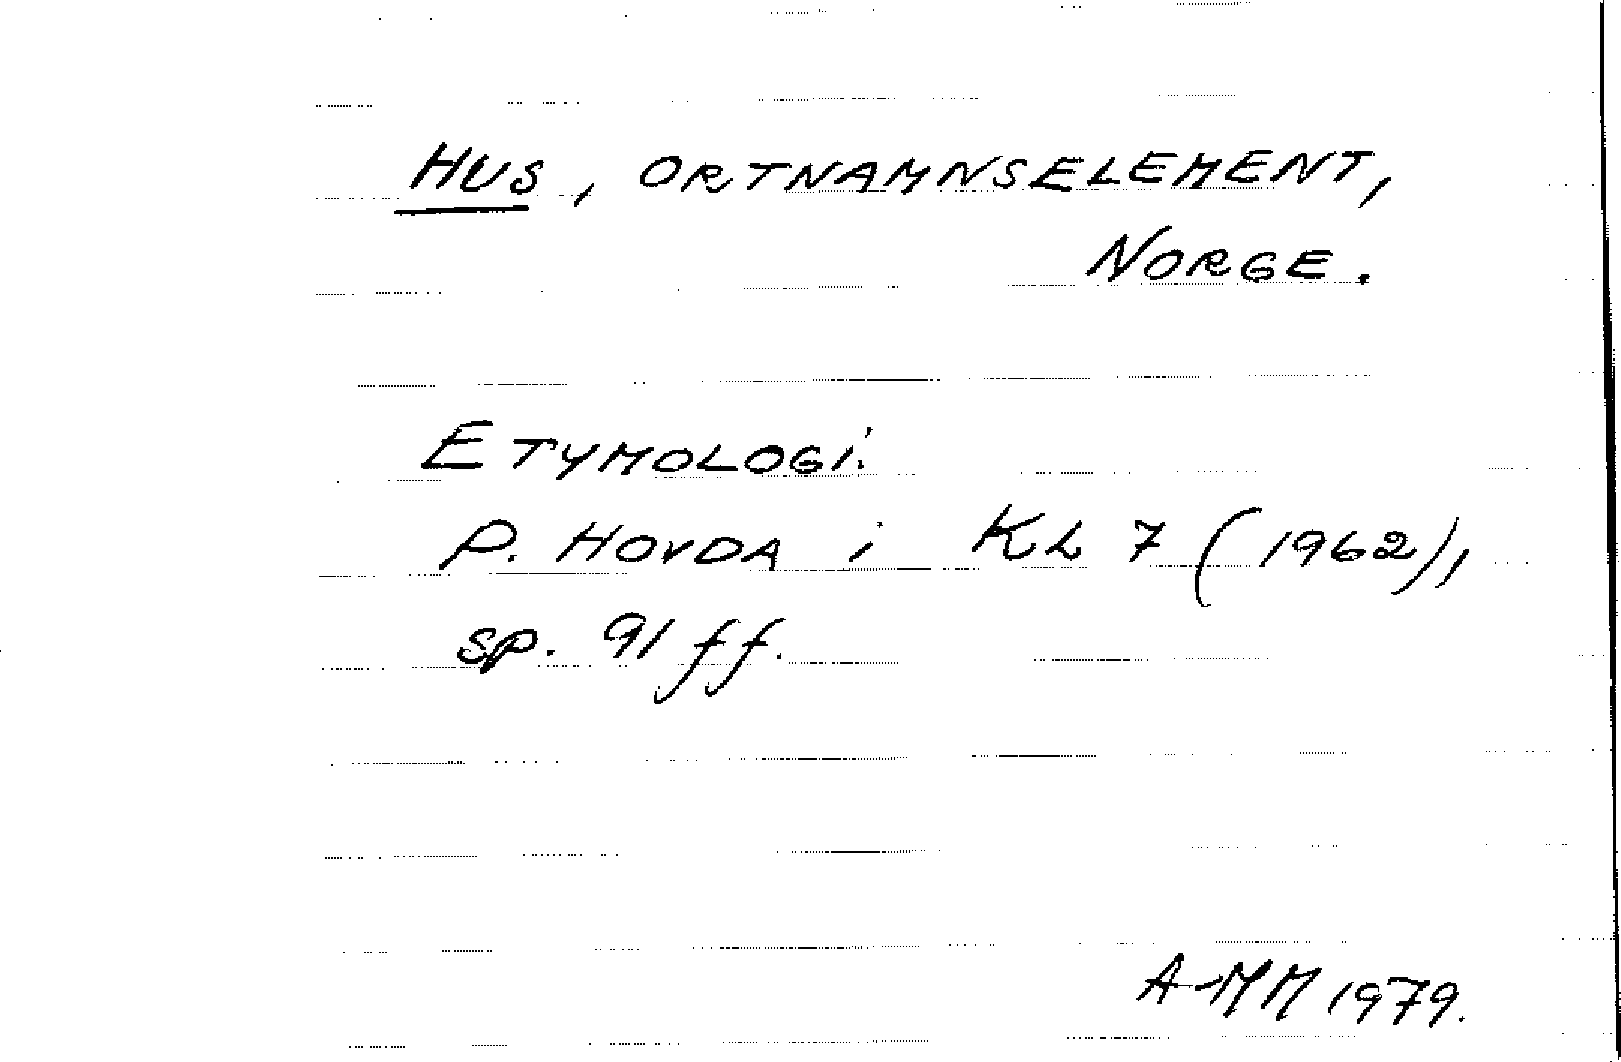 HUS, ORTNAMNSELEMENT,
NORGE.
ETYMOLOGI:
P. HOVDA i KL 7 (1962),
sp. 91 ff.
A-MM 1979.